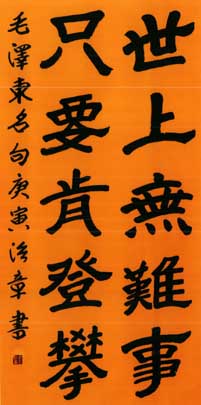 世上無難事
只要肯登攀
毛澤東名句庚寅治章書